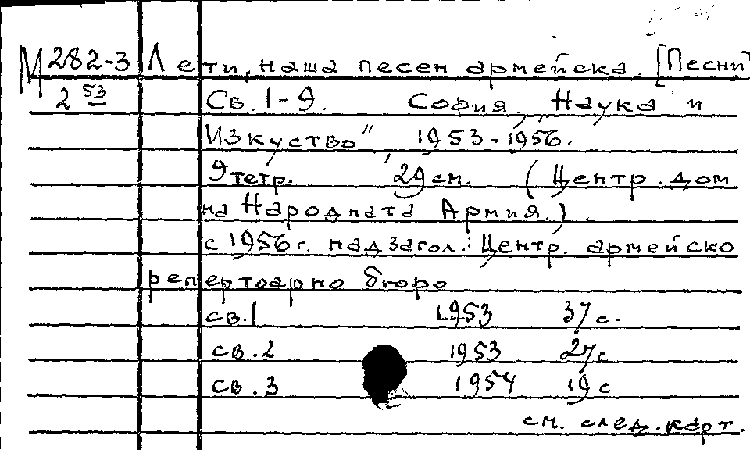 М 282-3 Лети, наша песен армейска. [Песни]
2 53 Св. 1-9. София, "Наука и
Изкуство" 1953-1956.
9 тетр. 29 см. (Центр. дом
на Народната Армия.)
с 1956 г. надзагол.: Центр. армейско
репертоарно бюро
св. 1 1953 37 с.
св. 2 1953 27 с
св. 3 1954 19 с
см. след. карт.